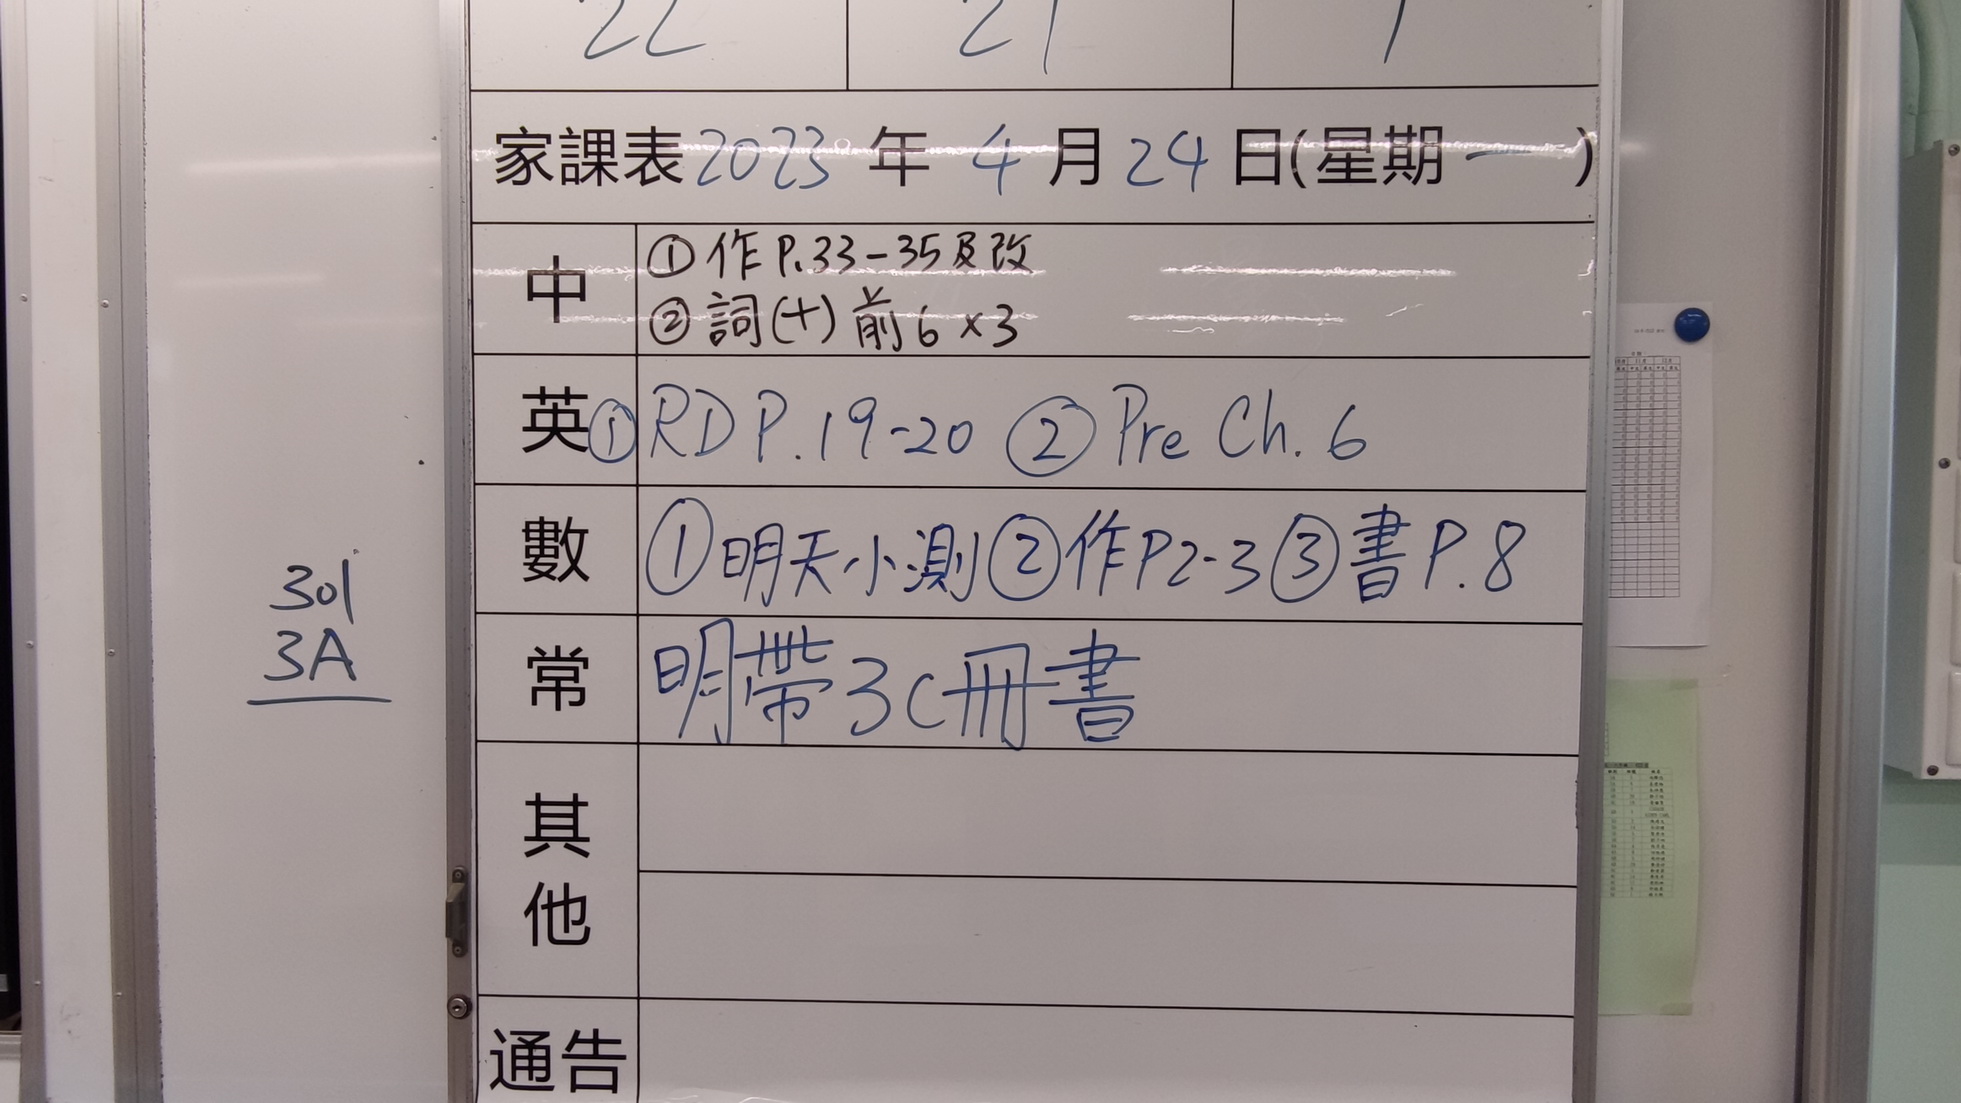 22 21 1
家課表 2023 年 4 月 24 日(星期 一 )
中
① 作 P.33-35 及改
② 詞(十) 前 6 ×3
英 ① RD P.19-20 ② Pre Ch. 6
數 ① 明天小測 ② 作 P2-3 ③ 書 P.8
常 明帶 3C 冊書
其他
通告
301
3A